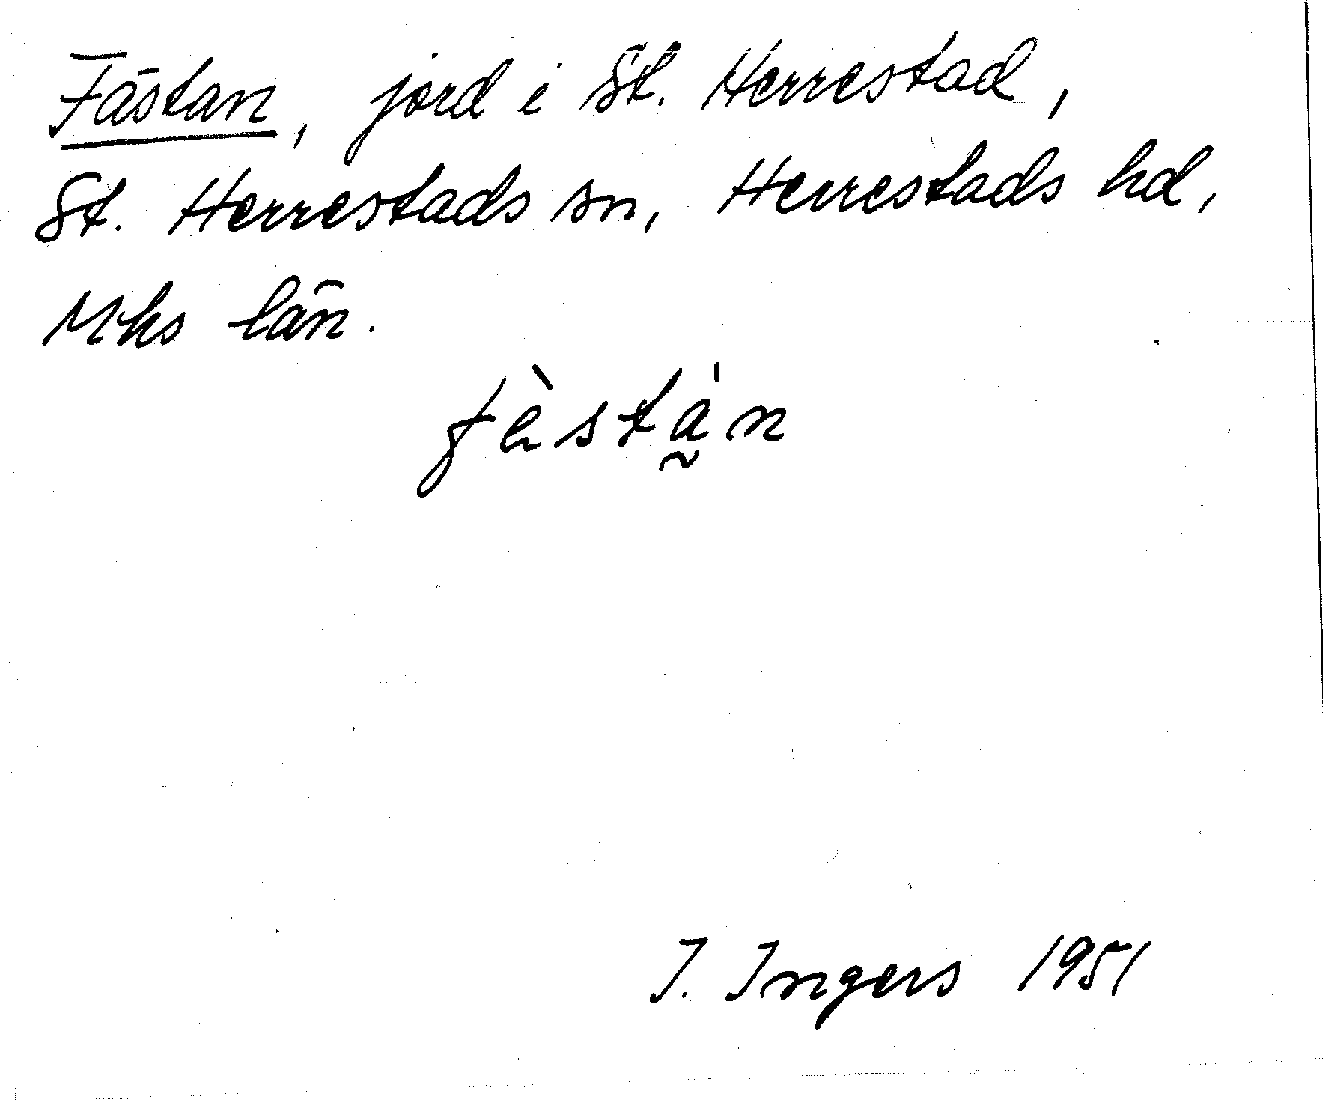 Fästan, jord i St. Herrestad,
St. Herrestads sn, Herrestads hd,
Mhs län.
fèsta̰̍n
I. Ingers 1951